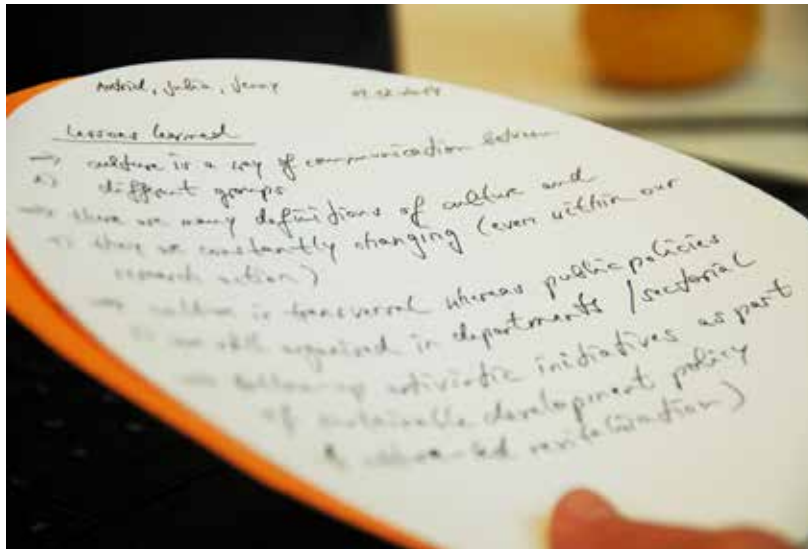 Astrid, Julia, Jenny
Lessons learned
→ culture is a way of communication between
diffrent groups
→ there are many definitions of culture and
there are constantly changing (even within our
research action)
→ culture is transversal whereas public policies
are still organised in departments / sectorial
→ follow-up artivistic initiatives as part
of sustainable development policy
revitalization)